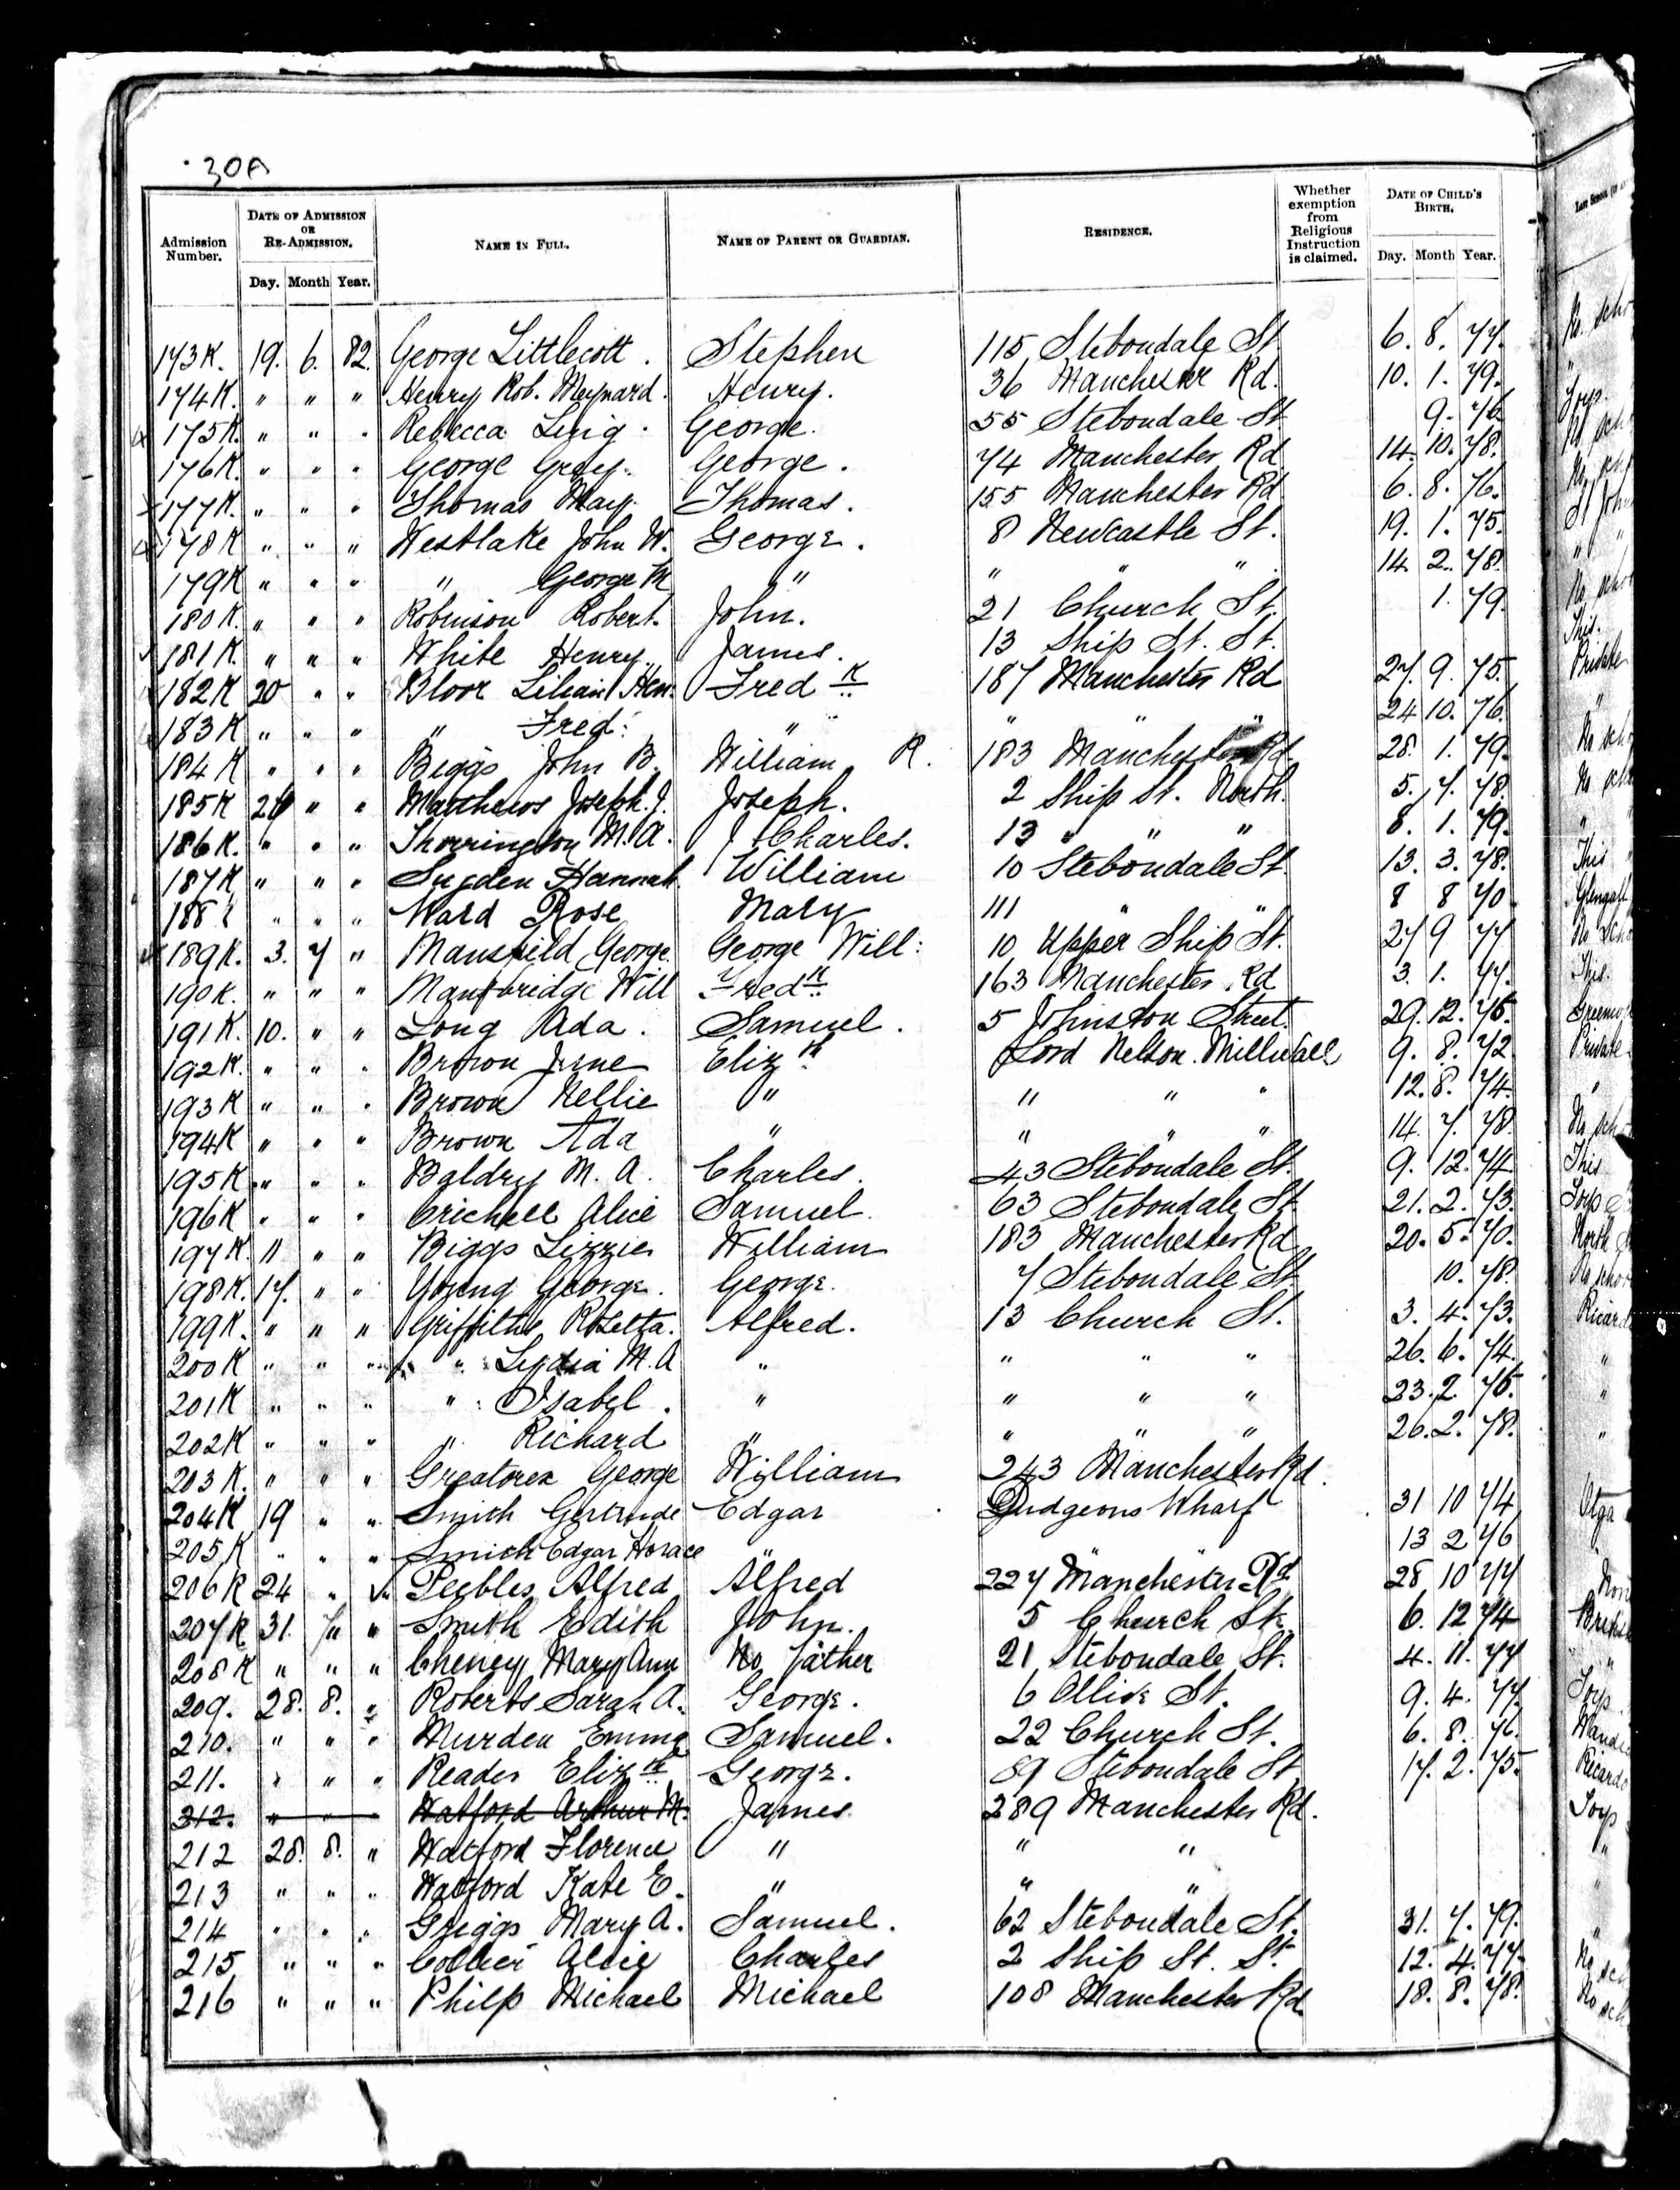 30A
Admission Number. DATE OF ADMISSION OR RE-ADMISSION. Day. Month Year. NAME IN FULL. NAME OF PARENT OR GUARDIAN. RESIDENCE. Whether exemption from Religious Instruction is claimed. DATE OF CHILD'S BIRTH. Day. Month Year.
173K. 19. 6. 82. George Littlecott. Stephen 115 Stebondale St. 6. 8. 77.
174K. " " " Henry Rob. Maynard. Henry. 36 Manchester Rd. 10. 1. 79.
175K. " " " Rebecca George. 55 Stebondale St. 9. 76.
176K. " " " George Gray. George. 74 Manchester Rd 14. 10. 78.
177K. " " " Thomas May. Thomas. 155 Manchester Rd 6. 8. 76.
178K " " " Westlake John W. George. 8 Newcastle St. 19. 1. 75.
179K " " " " George M " " " " 14. 2. 78.
180K. " " " Robinson Robert. John. 21 Church St. 1. 79.
181K. " " " White Henry. James. 13 Ship St. St.
182K 20 " " Bloor Lilian Hen: Fredk 187 Manchester Rd 27. 9. 75.
183K " " " " Fred: " " " " 24 10. 76.
184K " " " Biggs John B. William R. 183 Manchester Rd 28. 1. 79.
185K 26 " " Matthews Joseph. J. Joseph. 2 Ship St. North. 5. 7. 78.
186K. " " " Thorrington M. A. Charles. 13 " " " 8. 1. 79.
187K " " " Sugden Hannah. William 10 Stebondale St. 13. 3. 78.
188 " " " Ward Rose Mary 111 " " 8 8 70
189K. 3. 7 " Mansfield George George Will: 10 Upper Ship St. 27 9 77
190K. " " " Mantbridge Will Fredk 163 Manchester Rd 3. 1. 77.
191K. 10. " " Long Ada. Samuel. 5 Johnston Street. 29. 12. 76.
192K. " " " Brown Jane Elizth Lord Nelson. Millwall 9. 8. 72
193K " " " Brown Nellie " " " " 12. 8. 74.
194K " " " Brown Ada " " " " 14. 7. 78.
195K " " " Baldry M. A. Charles. 43 Stebondale St. 9. 12. 74.
196K " " " Crichell Alice Samuel. 63 Stebondale St 21. 2. 73.
197K. 11 " " Biggs Lizzie William 183 Manchester Rd 20. 5. 70.
198K. 17. " " Young George. George. 7 Stebondale St 10. 78.
199K. " " " Griffiths Rosetta. Alfred. 13 Church St. 3. 4. 73.
200K " " " " Lydia M. A " " " " 26. 6. 74.
201K " " " " Isabel. " " " " 23. 2. 76.
202K " " " " Richard " " " " 26. 2. 78.
203K. " " " Greatorex George William 243 Manchester Rd.
204K 19 " " Smith Gertrude Edgar Dudgeons Wharf 31 10 74
205K " " " Smith Edgar Horace " " 13 2 76
206K 24 " Peebles Alfred Alfred 227 Manchester Rd 28 10 77
207K 31. " Smith Edith John. 5 Church St. 6. 12 74
208K " " " Cheney Mary Ann No father 21 Stebondale St. 4. 11. 77
209. 28. 8. " Roberts Sarah A. George. 6 Ollive St. 9. 4. 77.
210. " " " Murden Emma Samuel. 22 Church St. 6. 8. 76.
211. " " " Reader Elizth George. 89 Stebondale St 17. 2. 75.
212. " " Watford Arthur M. James. 289 Manchester Rd.
212 28. 8. " Watford Florence " " "
213 " " " Watford Kate E. " " "
214 " " " Griggs Mary A. Samuel. 62 Stebondale St. 31. 7. 79.
215 " " " Collier Alice Charles 2 Ship St. St. 12. 4. 77.
216 " " " Philp Michael Michael 108 Manchester Rd 18. 8. 78.